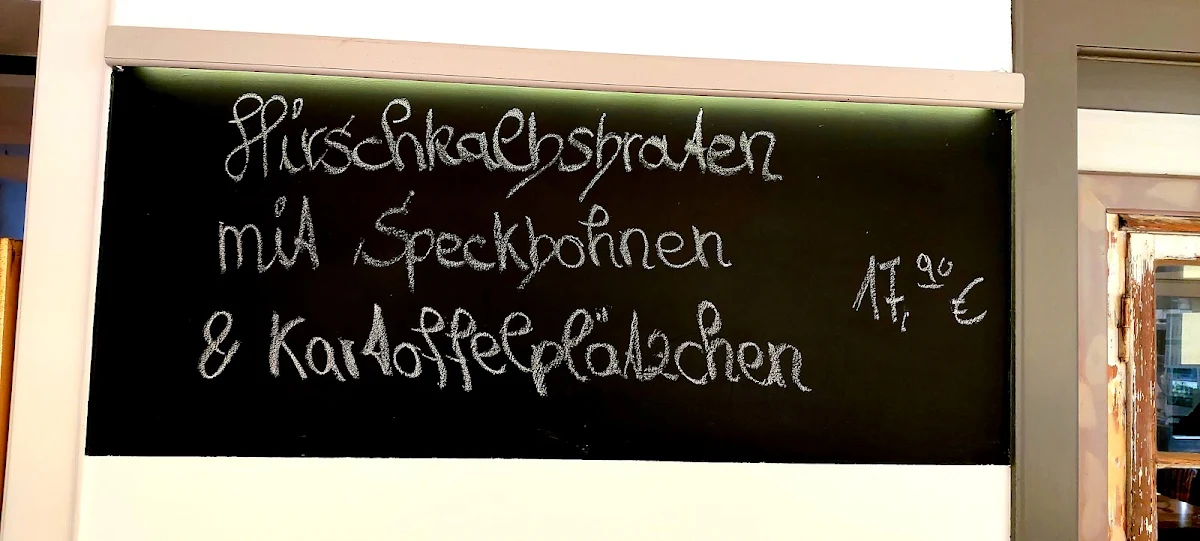 Hirschkalbsbraten
mit Speckbohnen
& Kartoffelplätzchen
17,90 €